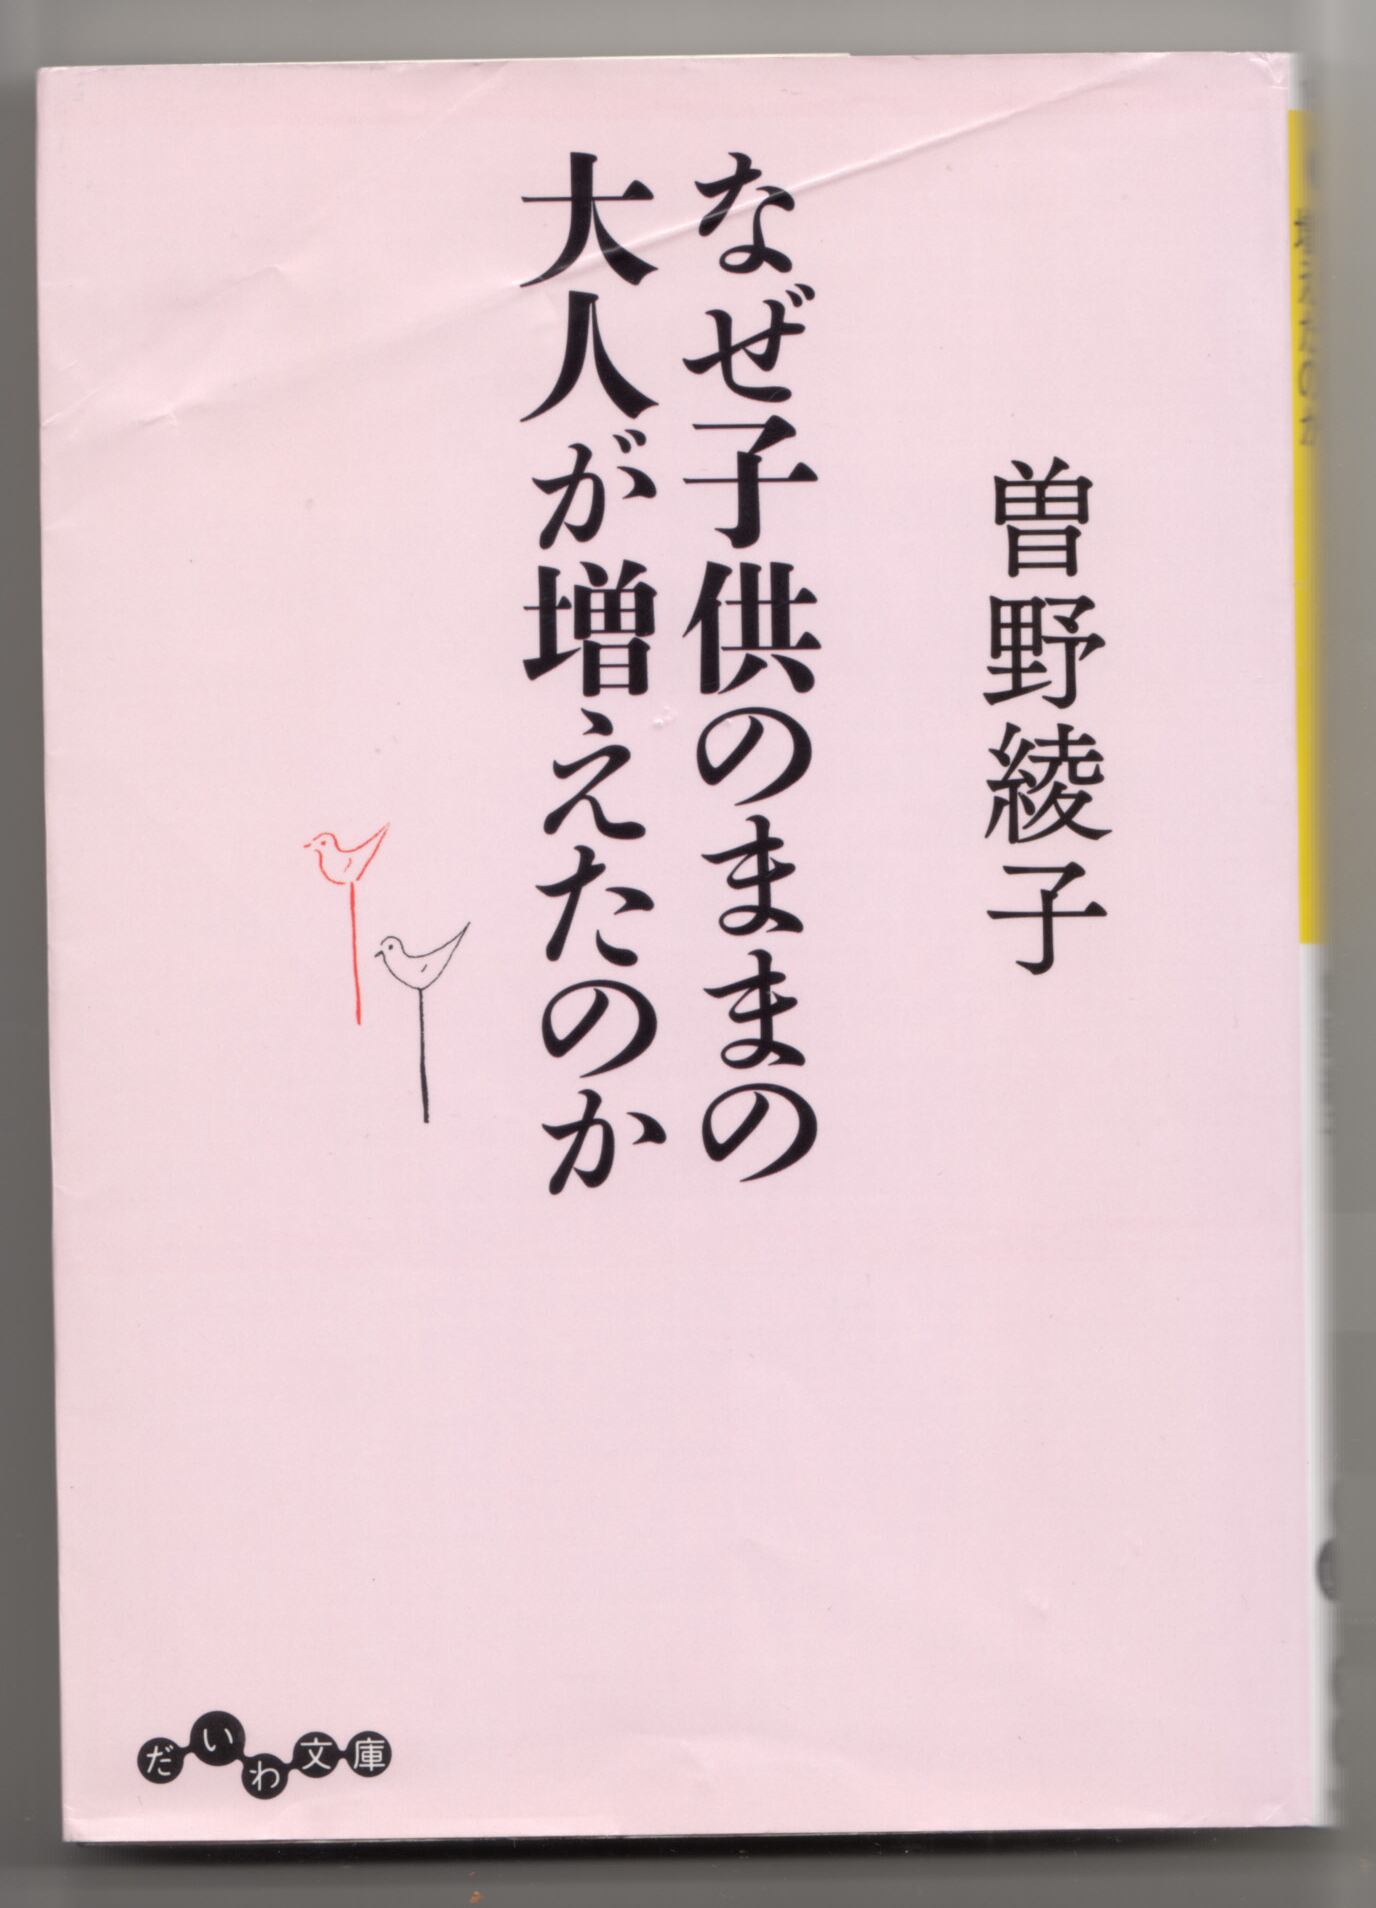 曽野綾子
なぜ子供のままの
大人が増えたのか
だいわ文庫